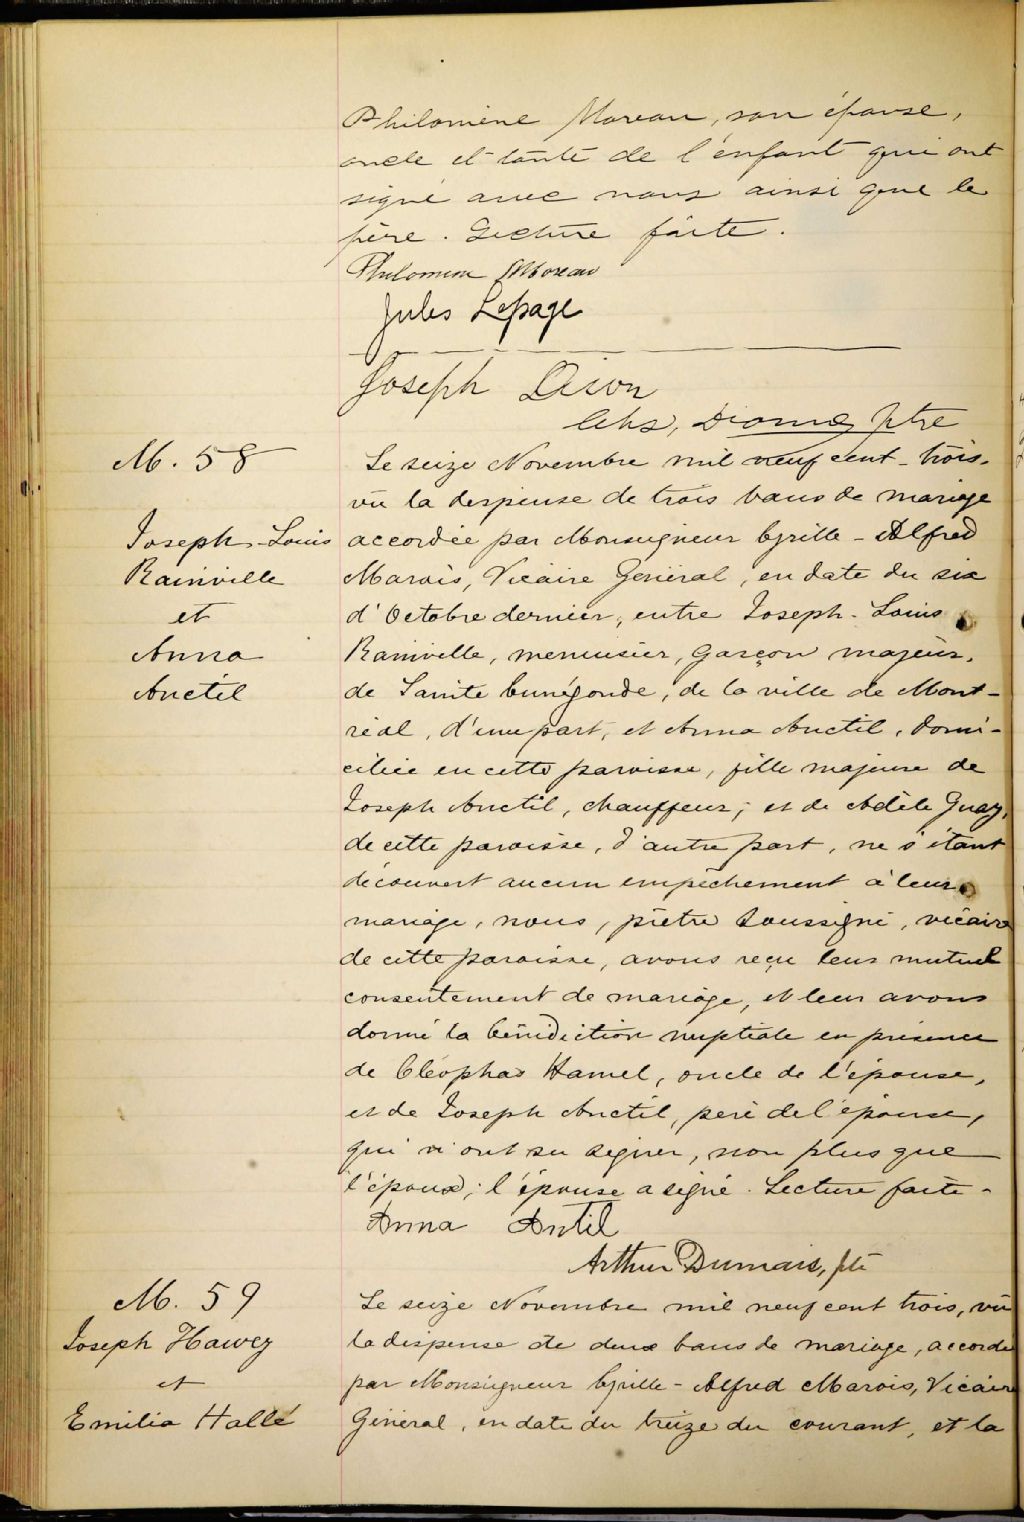 Philomène Moreau, son épouse,
oncle et tante de l'enfant qui ont
signé avec nous ainsi que le
père. Lecture faite.
Philomene Moreau
Jules Lepage
Joseph Dion
Chs, Dionne ptre
M. 58
Joseph-Louis
Rainville
et
Anna
Anctil
Le seize Novembre mil neuf cent-trois,
vu la dispense de trois bans de mariage
accordée par Monseigneur Cyrille-Alfred
Marois, Vicaire Général, en date du six
d'Octobre dernier, entre Joseph-Louis
Rainville, menuisier, garçon majeur,
de Sainte Cunégonde, de la ville de Mont-
réal, d'une part, et Anna Anctil, domi-
ciliée en cette paroisse, fille majeure de
Joseph Anctil, chauffeur, et de Adèle Guay,
de cette paroisse, d'autre part, ne s'étant
découvert aucun empêchement à leur
mariage, nous, prêtre soussigné, vicaire
de cette paroisse, avons reçu leur mutuel
consentement de mariage, et leur avons
donné la bénédiction nuptiale en présence
de Cléophas Hamel, oncle de l'épouse,
et de Joseph Anctil, père de l'épouse,
qui n'ont su signer, non plus que
l'époux; l'épouse a signé. Lecture faite-
Anna Antil
Arthur Dumais, ptr
M. 59
Joseph Hawey
et
Emilia Hallé
Le seize Novembre mil neuf cent trois, vu
la dispense de deux bans de mariage, accordé
par Monseigneur Cyrille-Alfred Marois, Vicaire
Général, en date du treize du courant, et la